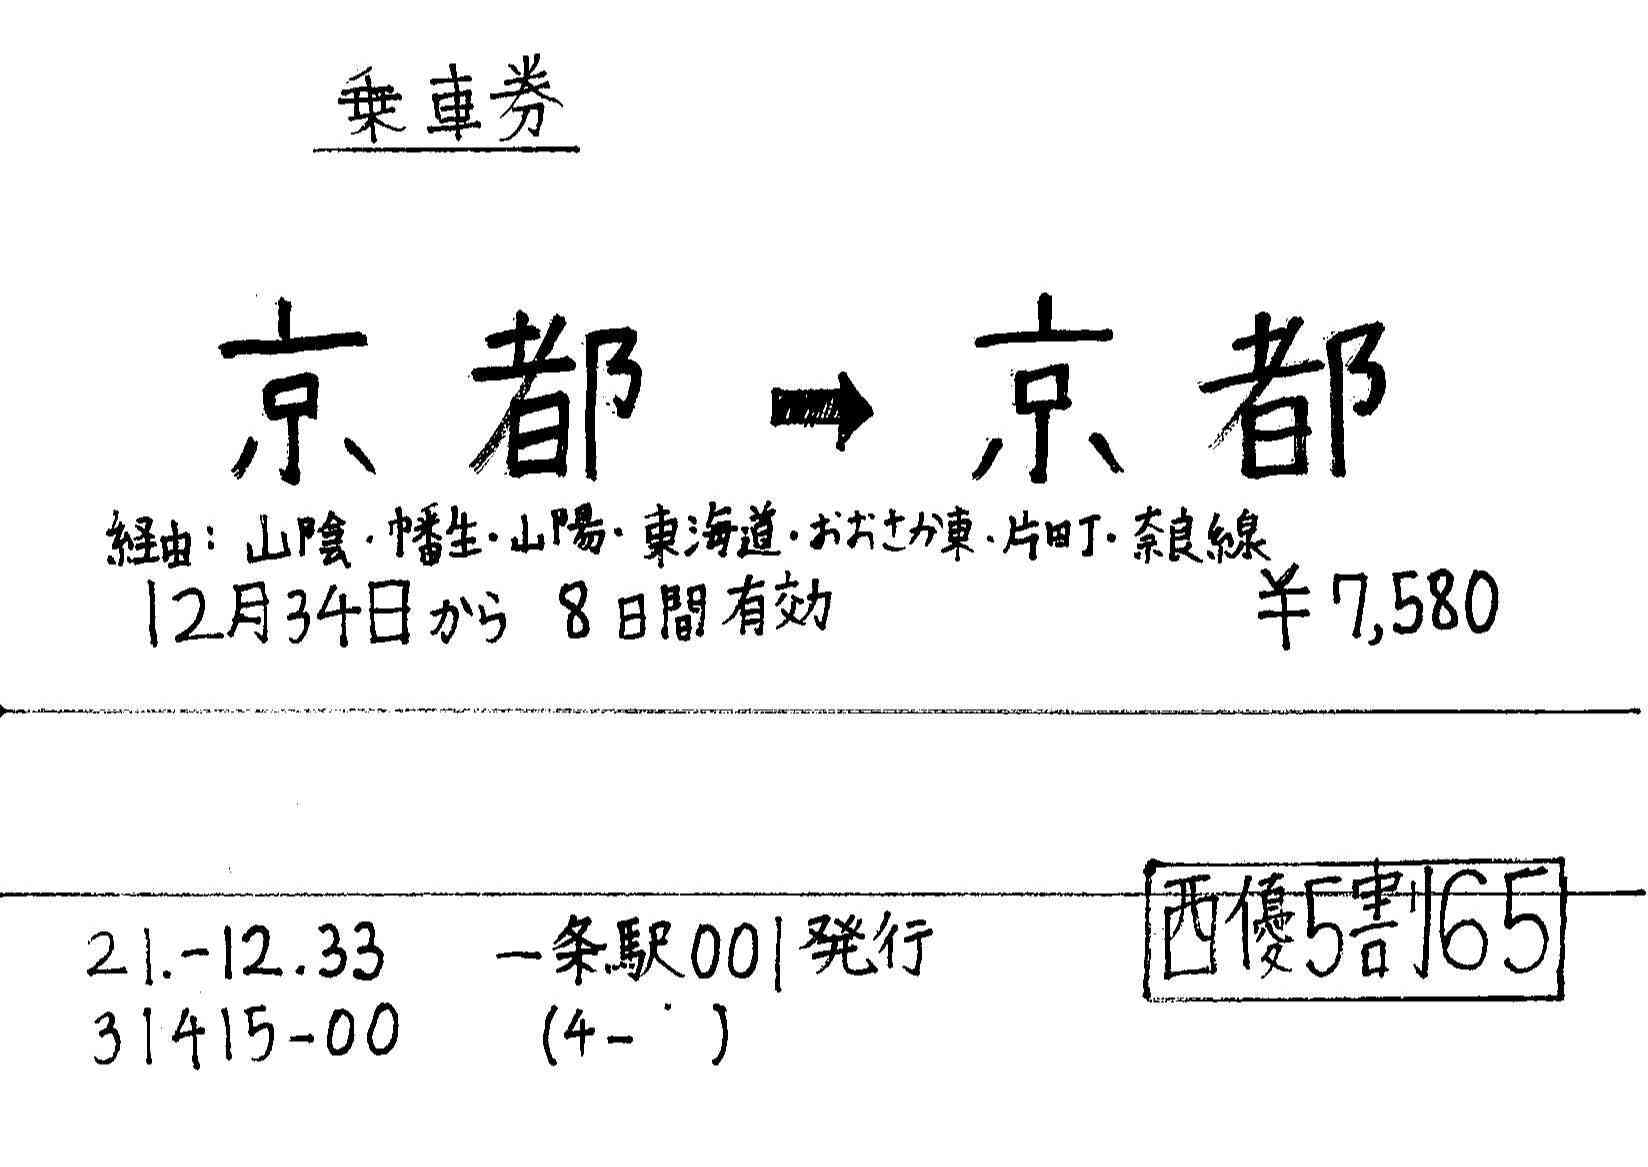 乗車券
京都➡京都
経由：山陰・幡生・山陽・東海道・おおさか東・片町・奈良線
12月34日から 8日間有効 ¥7,580
西優5割65
21.-12.33 一条駅001発行
31415-00 (4- )